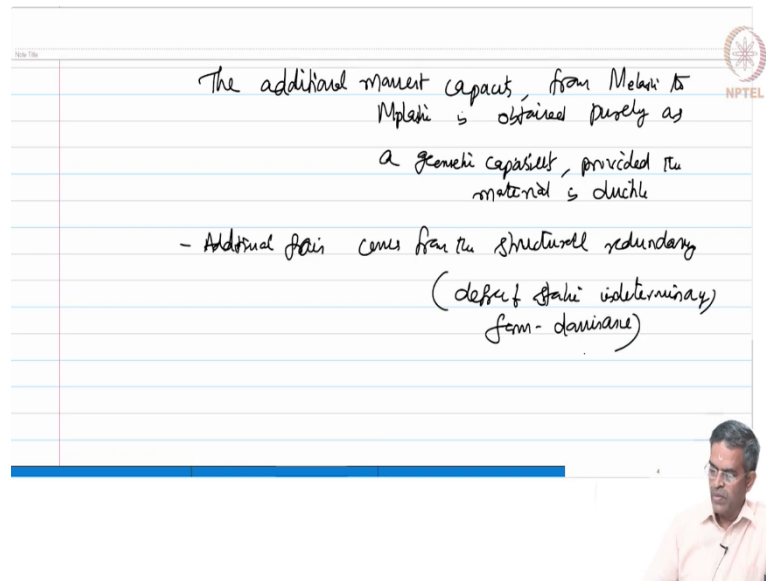 Note Title
NPTEL
The additional moment capacity, from Melastic to
Mplastic is obtained purely as
a geometric capability, provided the
material is ductile
- Additional gain comes from the structural redundancy
(degree of static indeterminacy)
form-dominance)
4